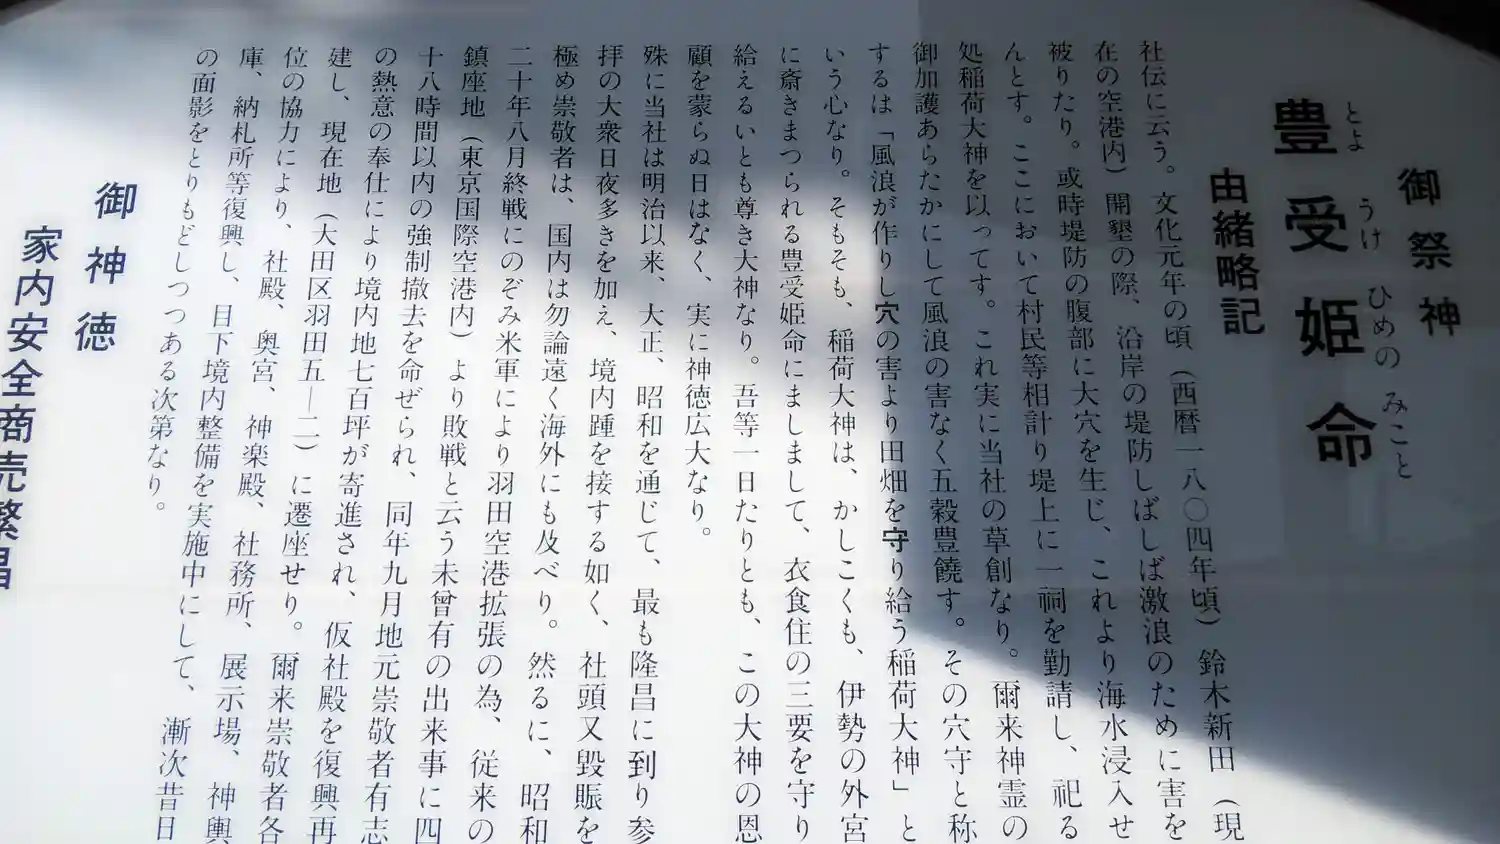 御祭神
豊受姫命
とようけひめのみこと
由緒略記
社伝に云う。文化元年の頃(西暦一八〇四年頃)鈴木新田(現
在の空港内)開墾の際、沿岸の堤防しばしば激浪のために害を
被りたり。或時堤防の腹部に大穴を生じ、これより海水浸入せ
んとす。ここにおいて村民等相計り堤上に一祠を勤請し、祀る
処稲荷大神を以ってす。これ実に当社の草創なり。爾来神霊の
御加護あらたかにして風浪の害なく五穀豊饒す。その穴守と称
するは「風浪が作りし穴の害より田畑を守り給う稲荷大神」と
いう心なり。そもそも、稲荷大神は、かしこくも、伊勢の外宮
に斎きまつられる豊受姫命にましまして、衣食住の三要を守り
給えるいとも尊き大神なり。吾等一日たりとも、この大神の恩
顧を蒙らぬ日はなく、実に神徳広大なり。
殊に当社は明治以来、大正、昭和を通じて、最も隆昌に到り参
拝の大衆日夜多きを加え、境内踵を接する如く、社頭又毀賑を
極め崇敬者は、国内は勿論遠く海外にも及べり。然るに、昭和
二十年八月終戦にのぞみ米軍により羽田空港拡張の為、従来の
鎮座地(東京国際空港内)より敗戦と云う未曾有の出来事に四
十八時間以内の強制撤去を命ぜられ、同年九月地元崇敬者有志
の熱意の奉仕により境内地七百坪が寄進され、仮社殿を復興再
建し、現在地(大田区羽田五―二)に遷座せり。爾来崇敬者各
位の協力により、社殿、奥宮、神楽殿、社務所、展示場、神輿
庫、納札所等復興し、目下境内整備を実施中にして、漸次昔日
の面影をとりもどしつつある次第なり。
御神徳
家内安全商売繁昌